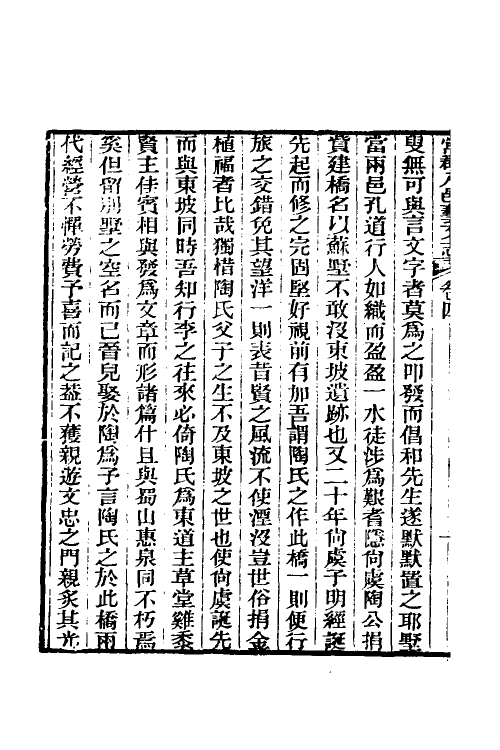 叟無可與言文字者莫為之叩發而倡和先生遂默默置之耶墅
當兩邑孔道行人如織而盈盈一水徒涉為艱者隱向虞陶公捐
貲建橋名以蘇墅不敢沒東坡遺跡也又二十年向虞子明經誕
先起而修之完固堅好視前有加吾謂陶氏之作此橋一則便行
旅之交錯免其望洋一則表昔賢之風流不使湮沒豈世俗捐金
植福者比哉獨惜陶氏父子之生不及東坡之世也使向虞誕先
而與東坡同時吾知行李之往來必倚陶氏為東道主草堂雞黍
賢主佳賓相與發為文章而形諸篇什且與蜀山惠泉同不朽焉
矣但留別墅之空名而已晉兒娶於陶為予言陶氏之於此橋兩
代經營不憚勞費予喜而記之蓋不獲親遊文忠之門親炙其光